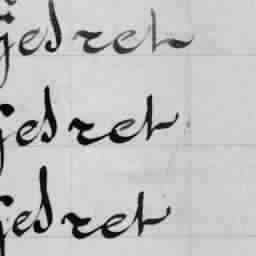 jedret
jedret
jedret